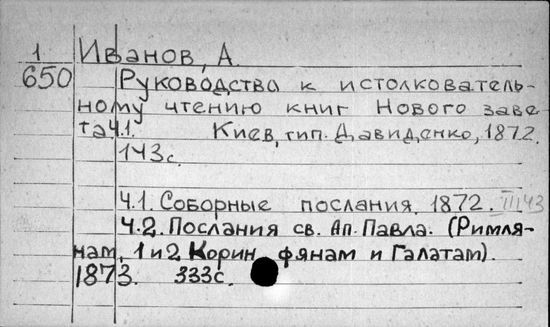 1 Иванов, А.
650 Руководства к истолкователь-
ному чтению книг Нового заве-
та Ч.1. Киев, тип. Давиденко, 1872.
143с.
Ч.1. Соборные послания. 1872. III,143
Ч.2. Послания св. Ап. Павла. (Римля-
нам, 1 и 2 Корин фянам и Галатам).
1873. 333с.